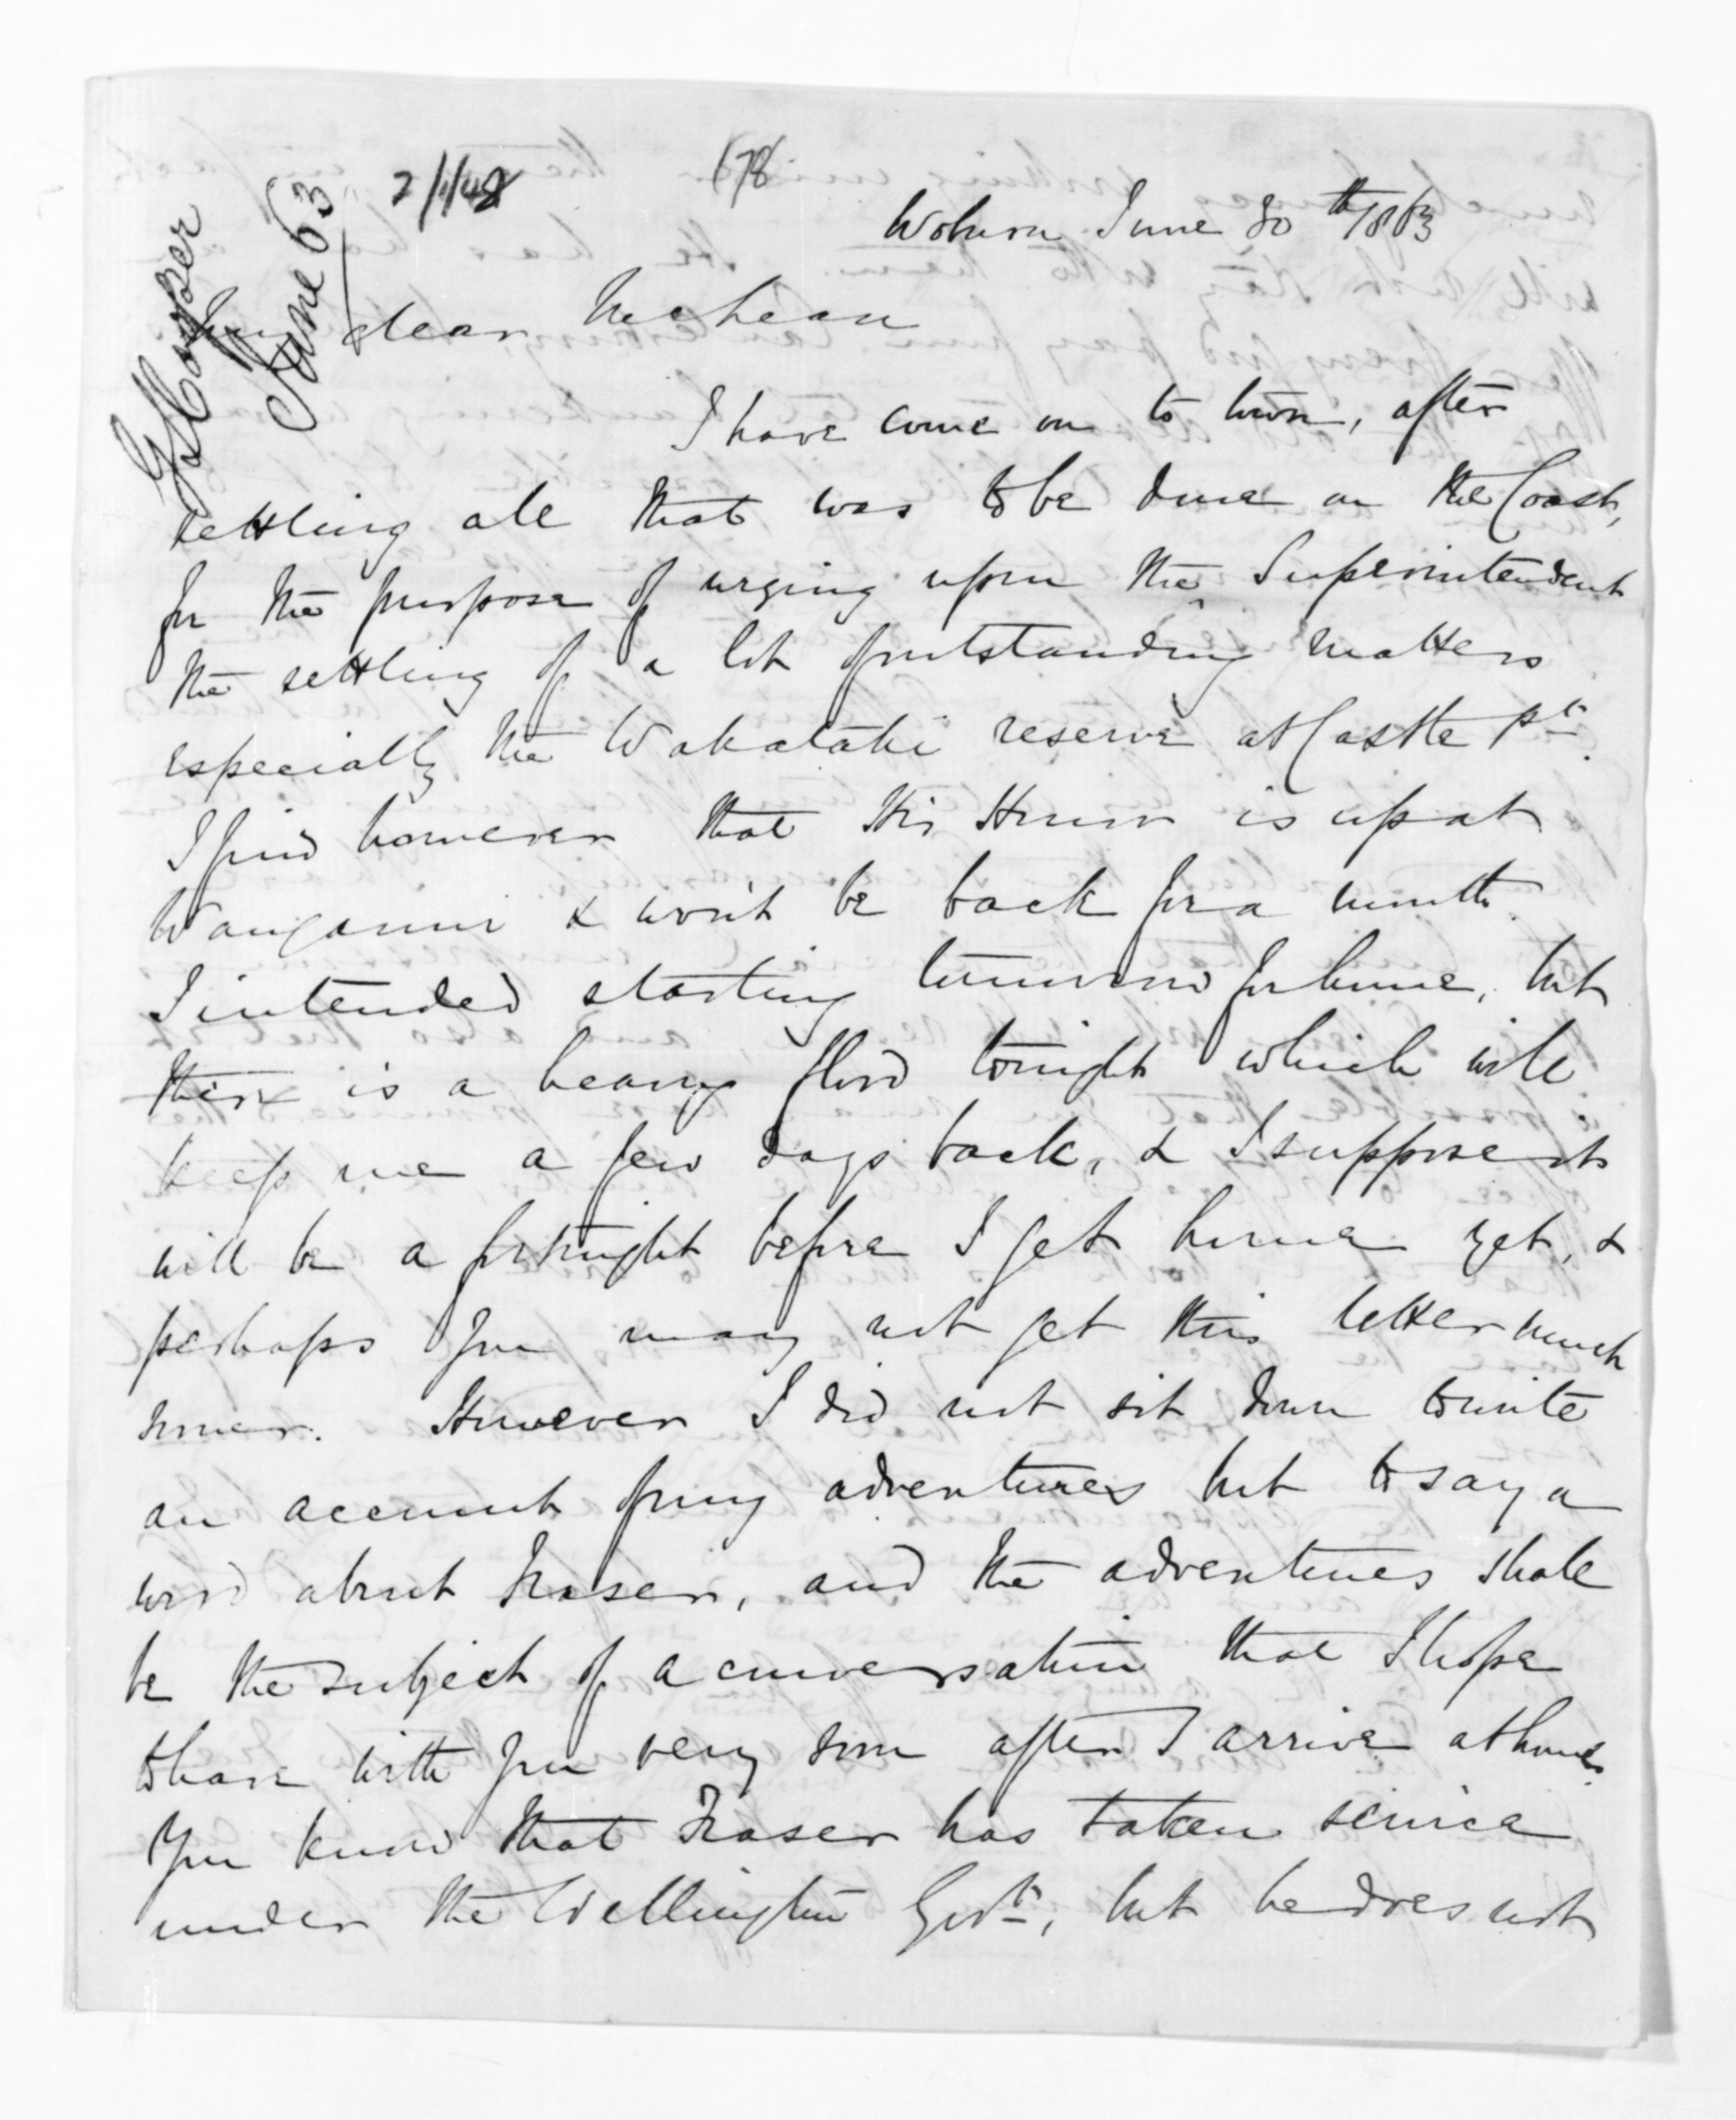 G S Cooper
June 63
178
Woburn June 30th 1863
My dear McLean
I have come on to town, after
settling all that was to be done on the Coast,
for the purpose of urging upon the Superintendent
the settling of a lot of outstanding matters
especially the Wakataki reserve at Castle Pt.
I find however that His Honor is up at
Wanganui & won't be back for a month.
I intended starting tomorrow for home, but
there is a heavy flood tonight which will
keep me a few days back, & I suppose it
will be a fortnight before I get home yet, &
perhaps you may not get this letter much
sooner. However I did not sit down to write
an account of my adventures but to say a
word about Fraser, and the adventures shall
be the subject of a conversation that I hope
to have with you very soon after I arrive at home.
You know that Fraser has taken service
under the Wellington Govt, but he does not